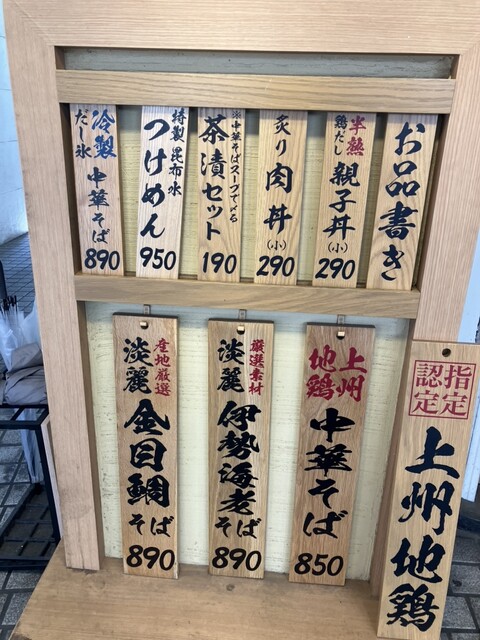 お品書き
半熟
鶏だし
親子丼(小)
290
炙り肉丼(小)
290
※中華そばスープで〆る
茶漬セット
190
特製 昆布水
つけめん
950
冷製
だし氷
中華そば
890
上州
地鶏
中華そば
850
厳選素材
淡麗
伊勢海老そば
890
産地厳選
淡麗
金目鯛そば
890
指定
認定
上州地鶏